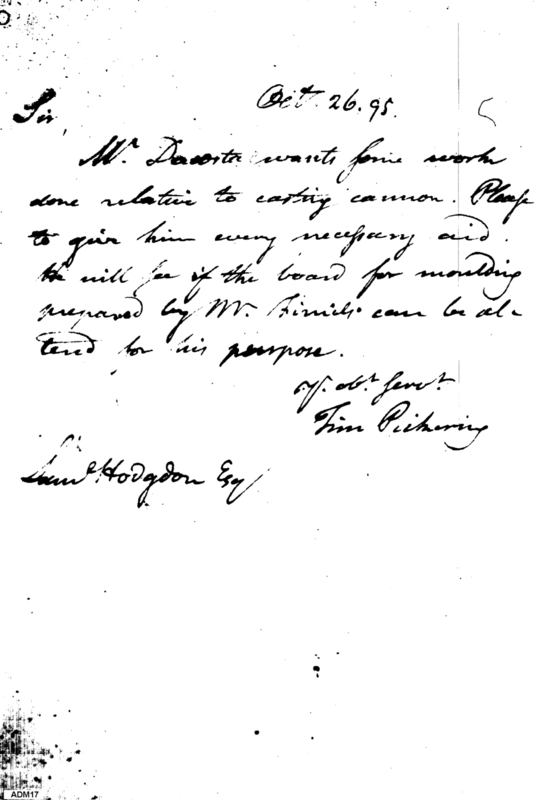 Octr. 26. 95.
Sir,
Mr. Dacosta wants some work
done relative to casting cannon. Please
to give him every necessary aid.
He will see if the board for moulding
prepared by Mr. Finiels can be al-
tend for his purpose.
Yr. obt. servt.
Tim Pickering
Saml. Hodgdon Esq
ADM17